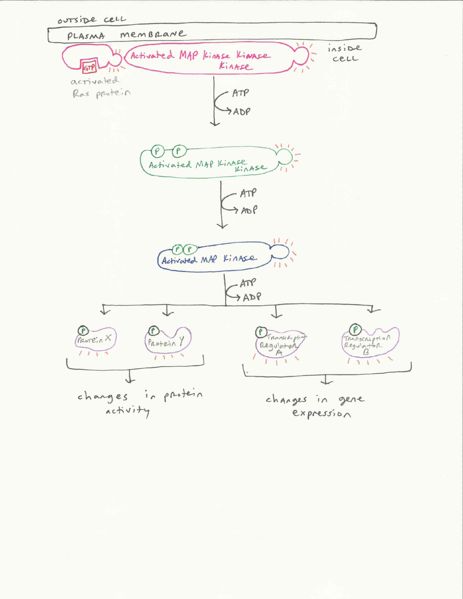 OUTSIDE CELL
PLASMA MEMBRANE
GTP
Activated MAP Kinase Kinase
Kinase
inside
cell
activated
Ras protein
ATP
ADP
P P
Activated MAP Kinase
Kinase
ATP
ADP
P P
Activated MAP Kinase
ATP
ADP
P
Protein X
P
Protein Y
P
Transcription
Regulator
A
P
Transcription
Regulator
B
changes in protein
activity
changes in gene
expression